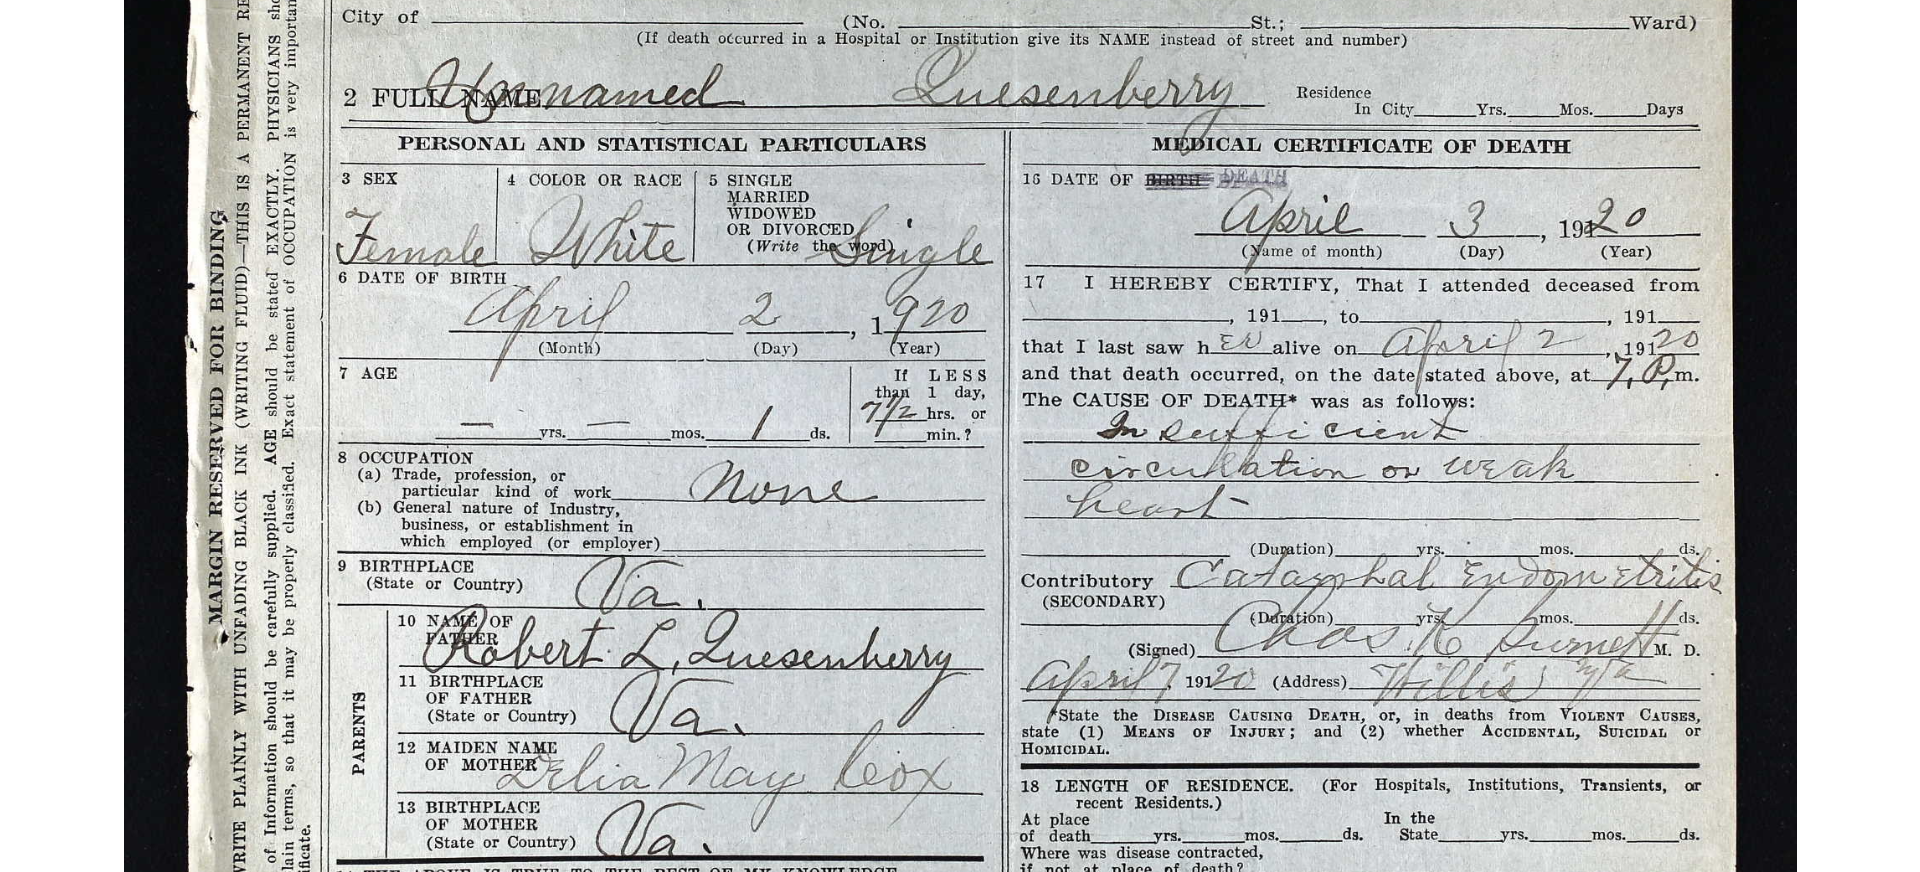 City of (No. St.; Ward)
(If death occurred in a Hospital or Institution give its NAME instead of street and number)
2 FULL NAME Unnamed Quesenberry
Residence
In City Yrs. Mos. Days
PERSONAL AND STATISTICAL PARTICULARS
3 SEX
Female
4 COLOR OR RACE
White
5 SINGLE
MARRIED
WIDOWED
OR DIVORCED
(Write the word) Single
6 DATE OF BIRTH
April 2, 1920
(Month) (Day) (Year)
7 AGE
— yrs. — mos. 1 ds.
If LESS
than 1 day,
7 1/2 hrs. or
min.?
8 OCCUPATION
(a) Trade, profession, or
particular kind of work None
(b) General nature of Industry,
business, or establishment in
which employed (or employer)
9 BIRTHPLACE
(State or Country) Va.
PARENTS
10 NAME OF
FATHER
Robert L. Quesenberry
11 BIRTHPLACE
OF FATHER
(State or Country) Va.
12 MAIDEN NAME
OF MOTHER Delia May Cox
13 BIRTHPLACE
OF MOTHER
(State or Country) Va.
MEDICAL CERTIFICATE OF DEATH
16 DATE OF BIRTH DEATH
April 3, 1920
(Name of month) (Day) (Year)
17 I HEREBY CERTIFY, That I attended deceased from
, 191 , to , 191
that I last saw her alive on April 2, 191 20
and that death occurred, on the date stated above, at 7, P, m.
The CAUSE OF DEATH* was as follows:
Insufficient
circulation or weak
heart
(Duration) yrs. mos. ds.
Contributory Catarrhal Endometritis
(SECONDARY)
(Duration) yrs. mos. ds.
(Signed) Chas. K Burnett M. D.
April 7, 191 20 (Address) Willis Va
*State the DISEASE CAUSING DEATH, or, in deaths from VIOLENT CAUSES,
state (1) MEANS OF INJURY; and (2) whether ACCIDENTAL, SUICIDAL or
HOMICIDAL.
18 LENGTH OF RESIDENCE. (For Hospitals, Institutions, Transients, or
recent Residents.)
At place
of death yrs. mos. ds.
In the
State yrs. mos. ds.
Where was disease contracted,
if not at place of death?
MARGIN RESERVED FOR BINDING
WRITE PLAINLY WITH UNFADING BLACK INK (WRITING FLUID)—THIS IS A PERMANENT RE
of Information should be carefully supplied. AGE should be stated EXACTLY. PHYSICIANS sho
lain terms, so that it may be properly classified. Exact statement of OCCUPATION is very importan
ificate.